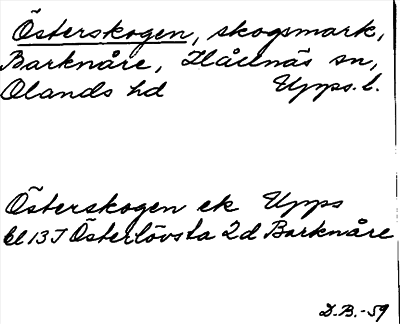 Österskogen, skogsmark,
Barknåre, Hållnäs sn,
Olands hd Upps. l.
Österskogen ek Upps
bl 13 I Österlövsta 2d Barknåre
D.B.-59